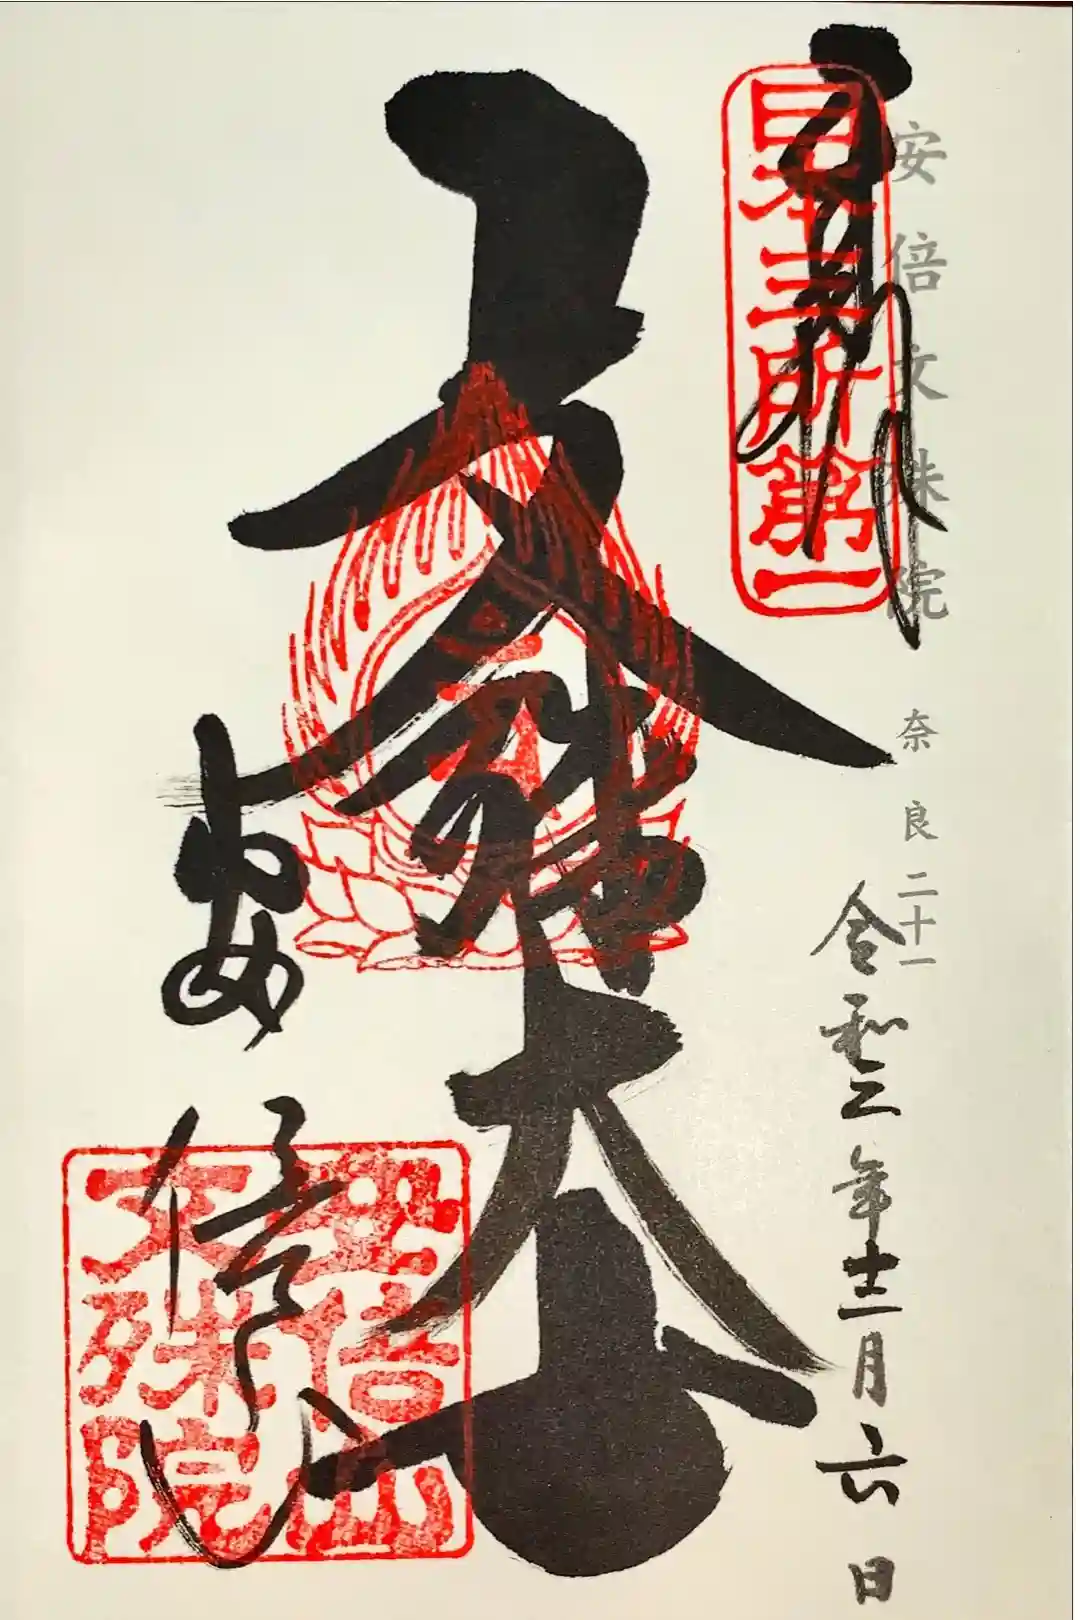 安倍文殊院 奈良二十一
奉拝
日本三所第一
令和三年十二月六日
文殊大士
安倍山
安倍山
文殊院